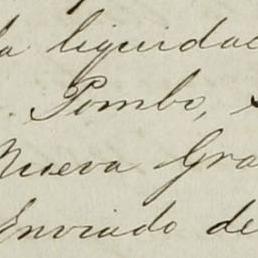 la liquidac
. Pombo,
Nueva Gra
Enviado de